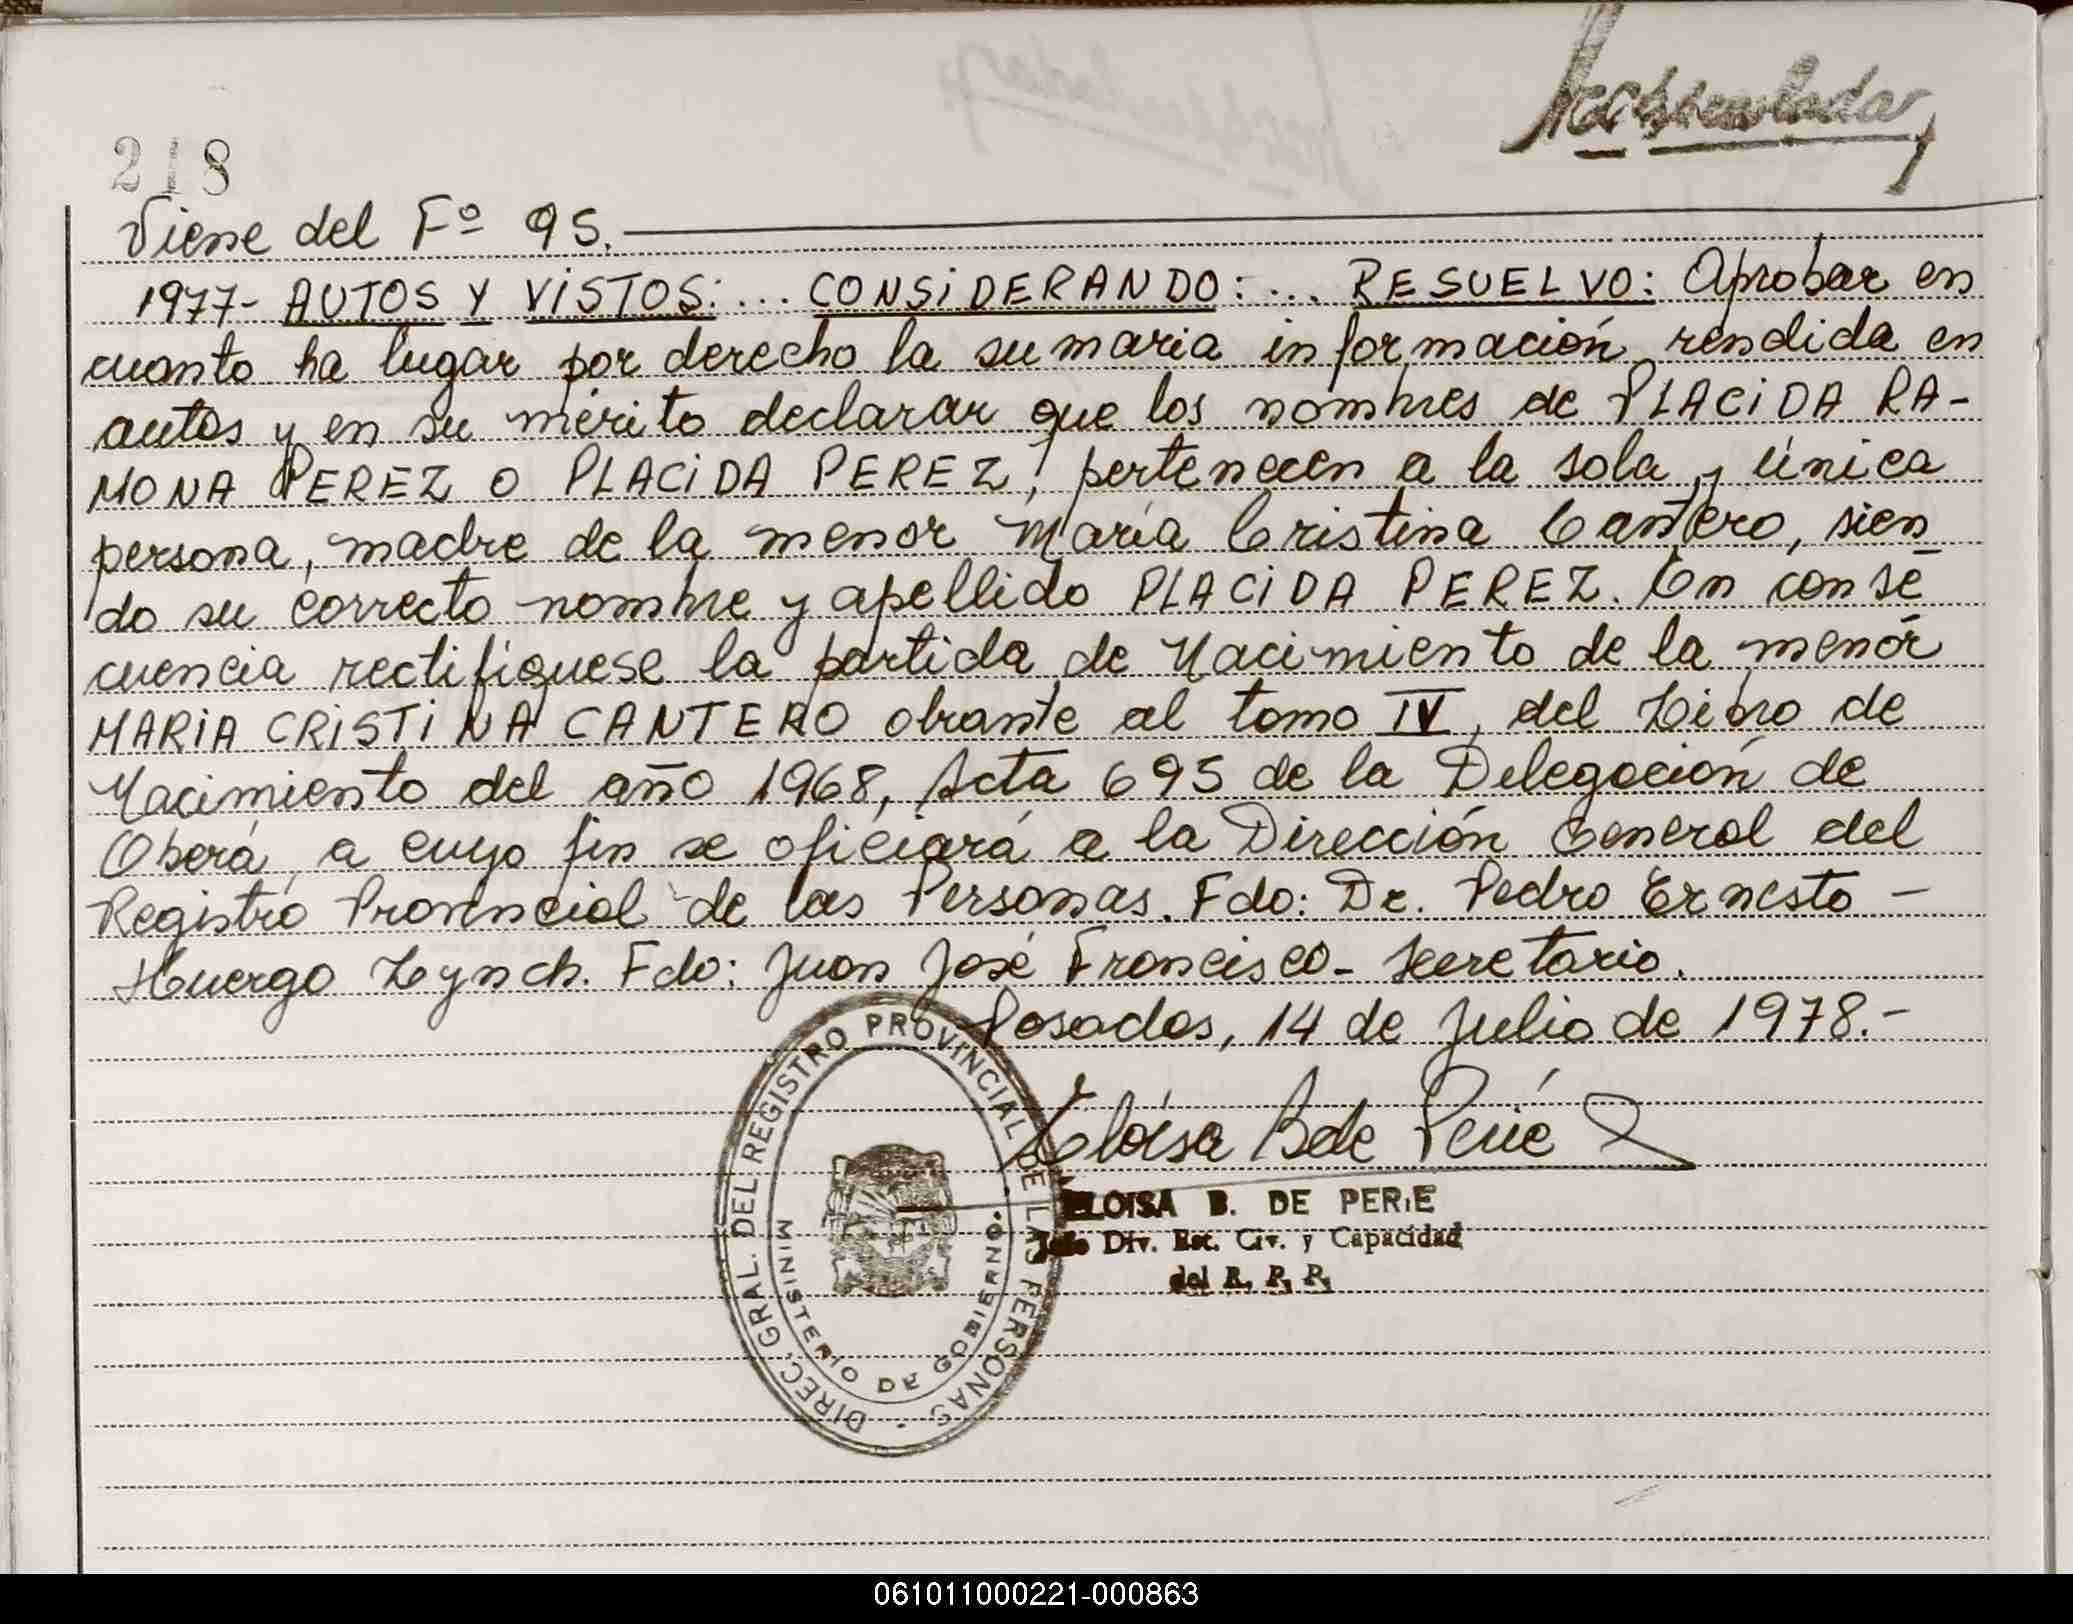 218
Viene del Fº 95.
1977- AUTOS Y VISTOS:... CONSIDERANDO:... RESUELVO: Aprobar en
cuanto ha lugar por derecho la sumaria información rendida en
autos y en su mérito declarar que los nombres de PLACIDA RA-
MONA PEREZ O PLACIDA PEREZ, pertenecen a la sola y única
persona, madre de la menor María Cristina Cantero, sien
do su correcto nombre y apellido PLACIDA PEREZ. En conse
cuencia rectifíquese la partida de Nacimiento de la menor
MARIA CRISTINA CANTERO obrante al tomo IV, del Libro de
Nacimiento del año 1968, Acta 695 de la Delegación de
Oberá, a cuyo fin se oficiará a la Dirección General del
Registro Provincial de las Personas. Fdo: Dr. Pedro Ernesto -
Huergo Lynch. Fdo: Juan José Francisco- Secretario.
Posadas, 14 de Julio de 1978.-
Eloísa B de Perié
ELOISA B. DE PERIE
Jefe Div. Est. Civ. y Capacidad
del R. P. P.
DIREC. GRAL. DEL REGISTRO PROVINCIAL DE LAS PERSONAS
MINISTERIO DE GOBIERNO
061011000221-000863